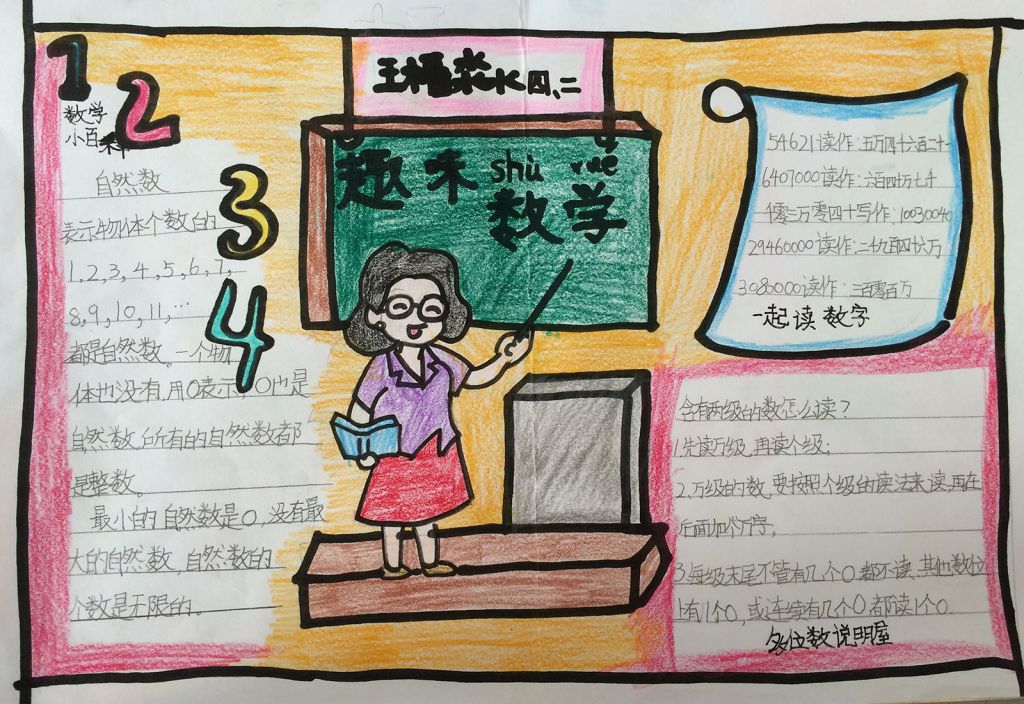 1
2
3
4
数学
小百科
自然数
表示物体个数的
1,2,3,4,5,6,7,
8,9,10,11,…
都是自然数。一个物
体也没有,用0表示,0也是
自然数,所有的自然数都
是整数。
最小的自然数是0,没有最
大的自然数,自然数的
个数是无限的。
四、二
趣味 shù xue
数学
54621读作:五万四千六百二十一
6407000读作:六百四十万七千
一千零三万零四十写作:10030040
29460000读作:二千九百四十六万
3080000读作:三百零百万
一起读数字
含有两级的数怎么读?
1.先读万级,再读个级;
2.万级的数,要按照个级的读法来读,再在
后面加个万字;
3.每级末尾不管有几个0,都不读,其他数位
上有1个0,或连续有几个0,都读1个0.
多位数说明屋